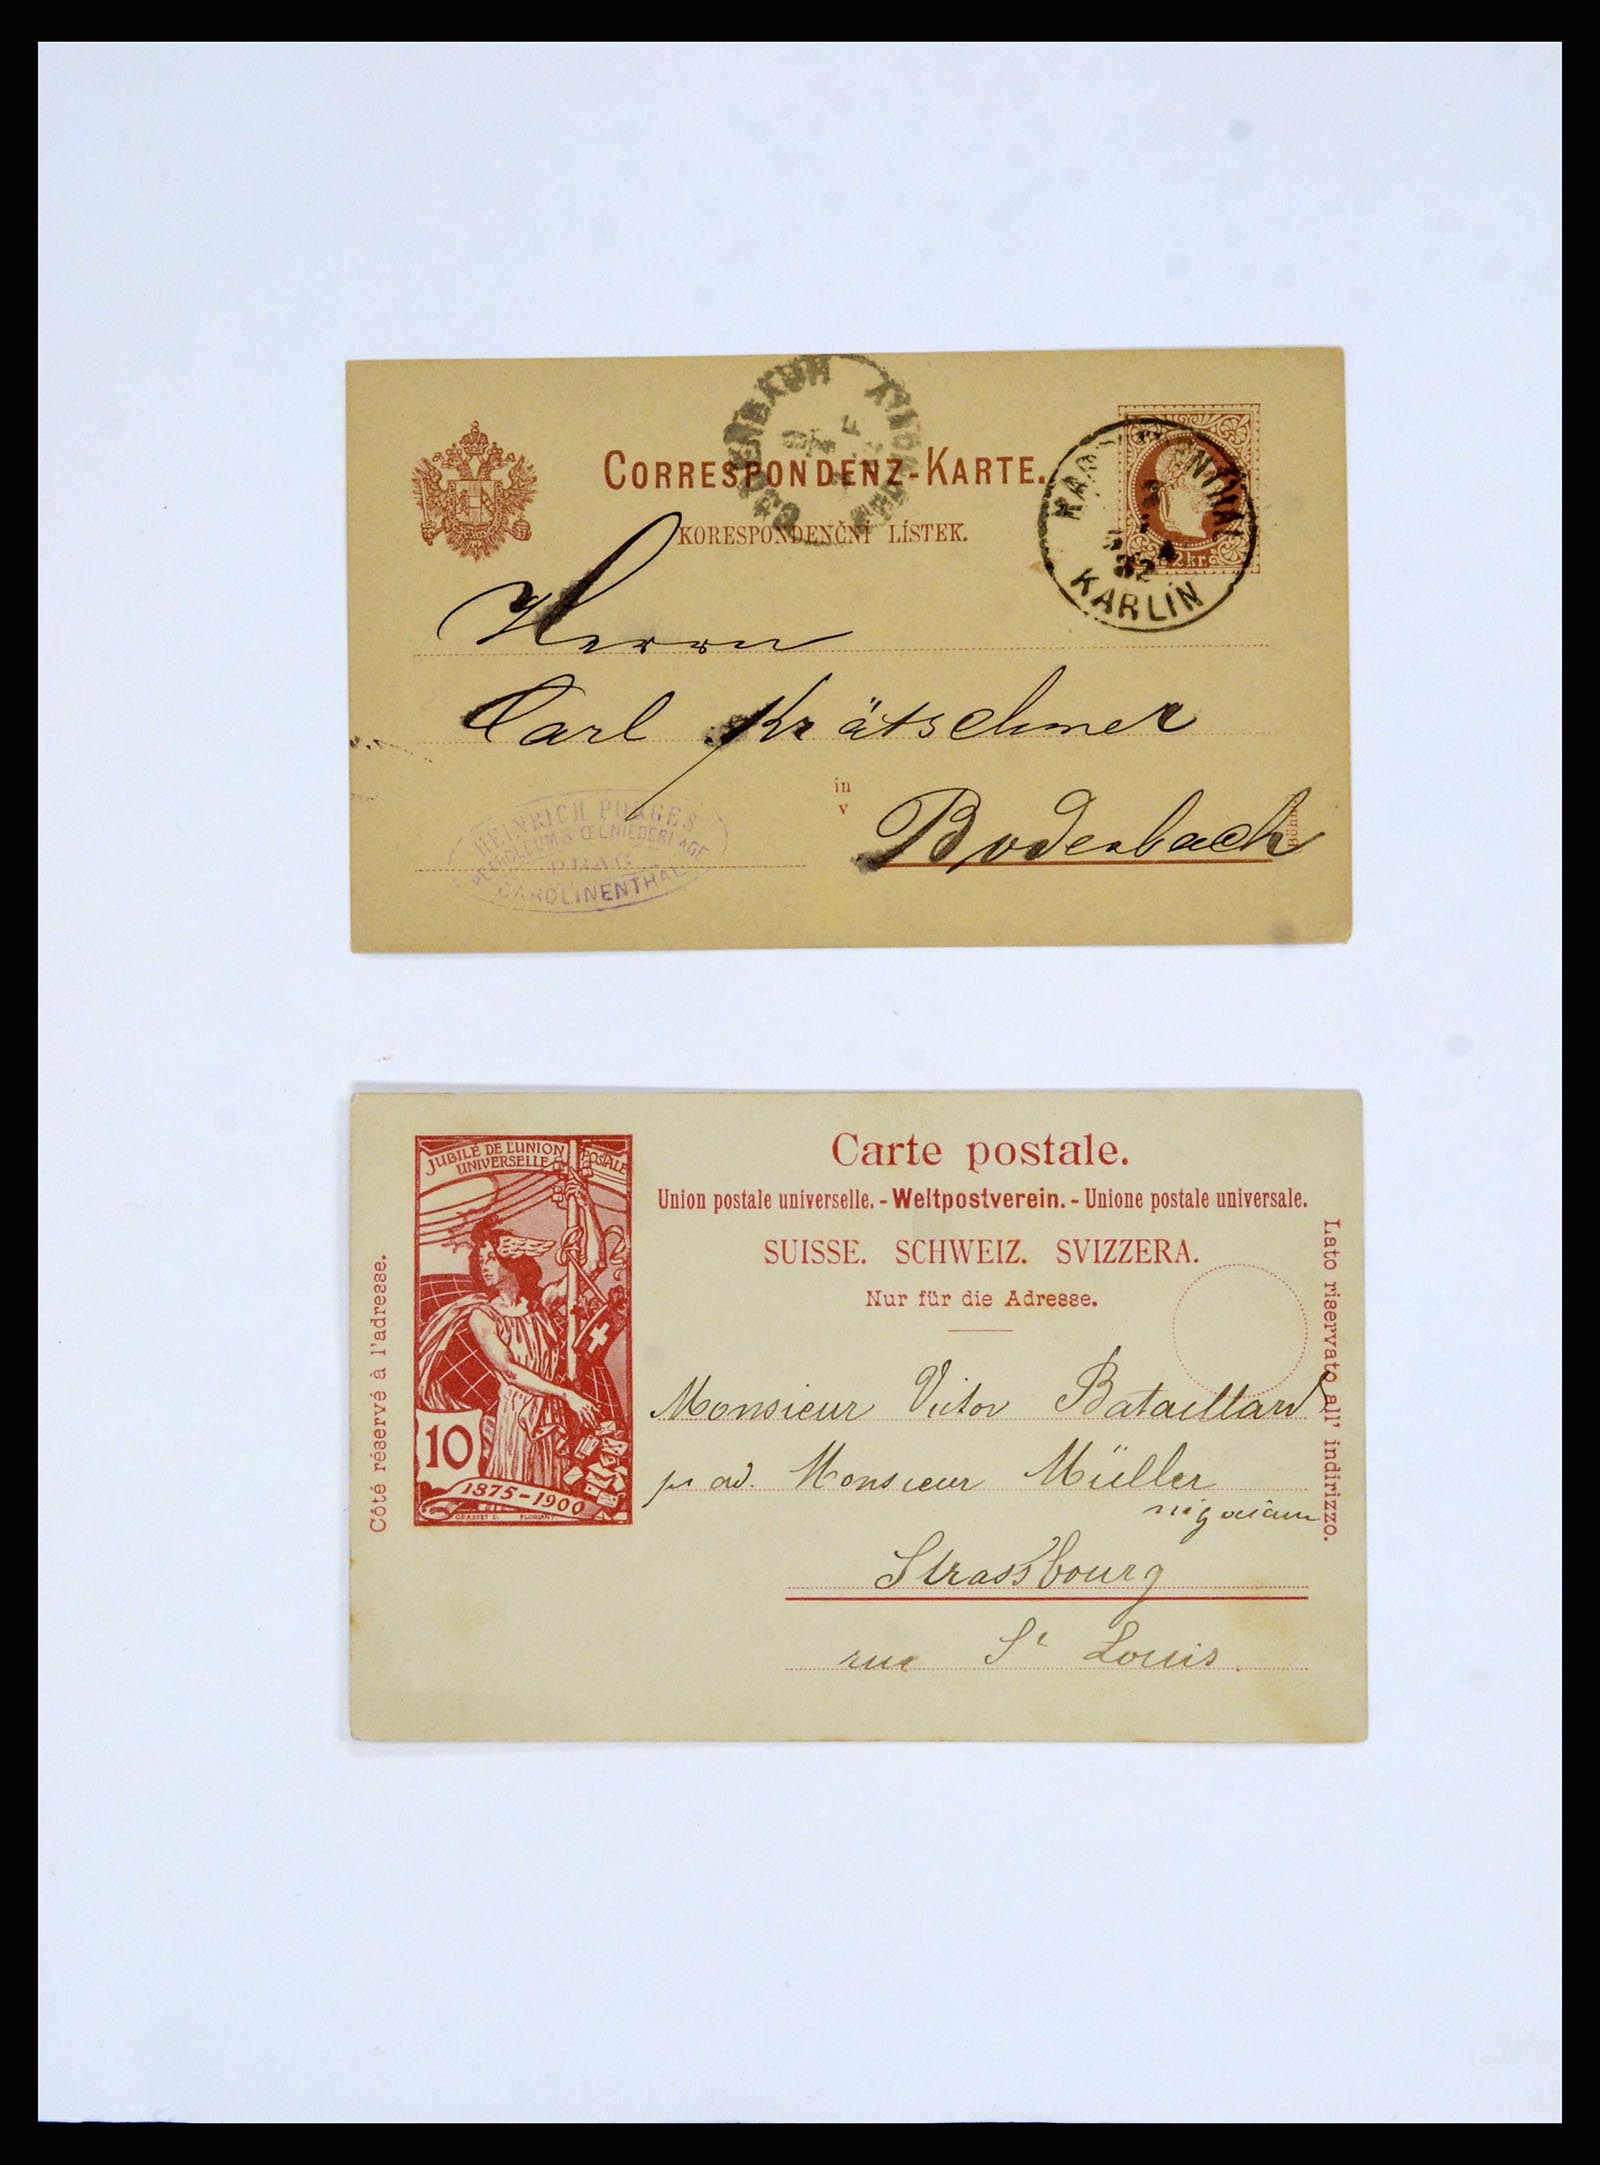 CORRESPONDENZ-KARTE.
KORESPONDENČNÍ LÍSTEK.
2 kr.
82
KARLÍN
Herrn
Carl Krätschmer
in
v
Bodenbach
HEINRICH PORGES
PETROLEUM & OELNIEDERLAGE
PRAG
CAROLINENTHAL
JUBILÉ DE L'UNION POSTALE
UNIVERSELLE
10
1875-1900
GRASSET D. FLORIAN
Côté réservé à l'adresse.
Carte postale.
Union postale universelle. - Weltpostverein. - Unione postale universale.
SUISSE. SCHWEIZ. SVIZZERA.
Nur für die Adresse.
Lato riservato all' indirizzo.
Monsieur Victor Bataillard
pr ad. Monsieur Müller
négociant
Strassbourg
rue St Louis.